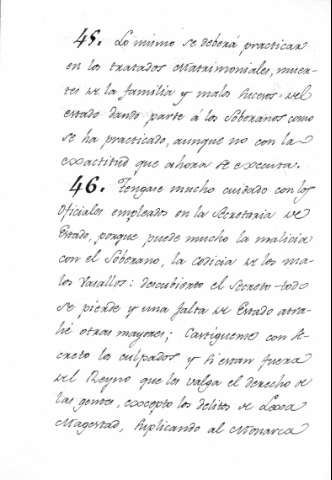 45. Lo mismo se deberá practicar
en los tratados Matrimoniales, muer-
tes de la familia y malos sucesos del
estado dando parte á los Soberanos como
se ha practicado, aunque no con la
exactitud que ahora se executa.
46. Tengase mucho cuidado con los
Oficiales empleados en la Secretaria de
Estado, porque puede mucho la malicia
con el Soberano, la codicia de los ma-
los Vasallos: descubierto el Secreto todo
se pierde y una falta de Estado atra-
hé otras mayores; Castiguense con se-
creto los culpados y si estan fuera
del Reyno que les valga el derecho de
las gentes, excepto los delitos de Lessa
Magestad, suplicando al Monarca